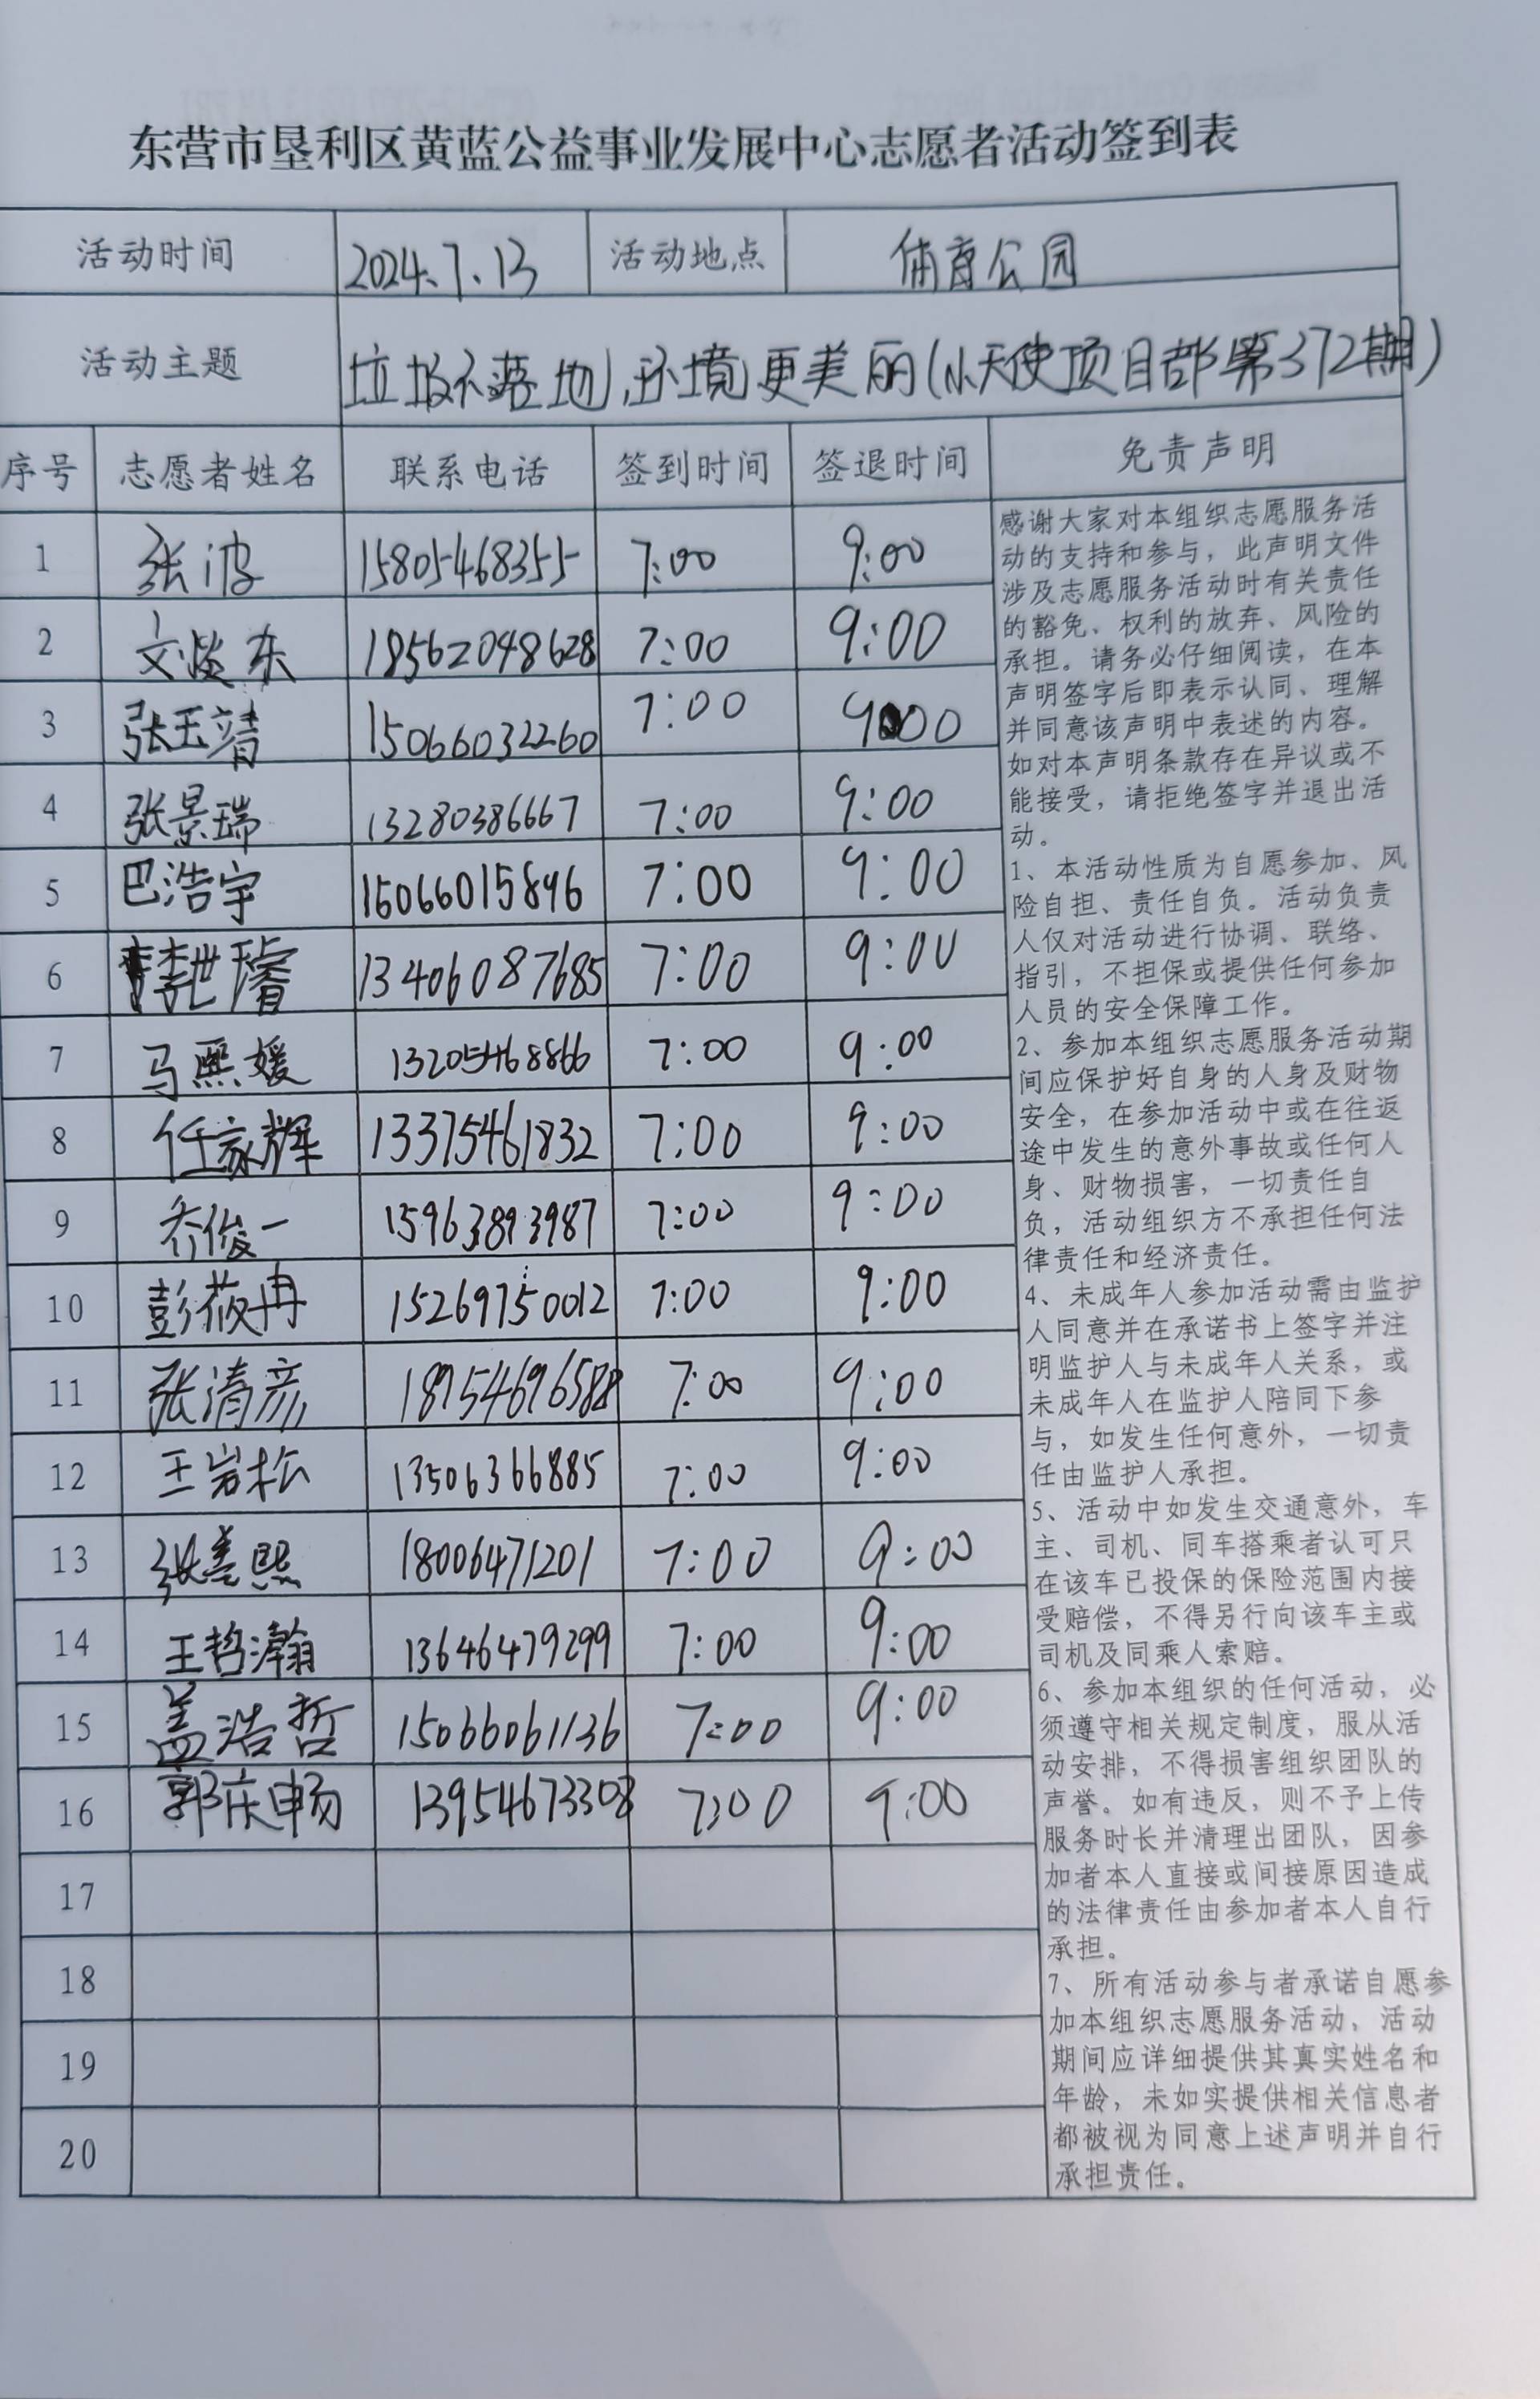 东营市垦利区黄蓝公益事业发展中心志愿者活动签到表
活动时间 2024.7.13 活动地点 体育公园
活动主题 垃圾不落地,环境更美丽(小天使项目部第372期)
序号 志愿者姓名 联系电话 签到时间 签退时间 免责声明
1 张波 15805468355 7:00 9:00
2 文 东 18562048628 7:00 9:00
3 张玉靖 15066032260 7:00 9:00
4 张景瑞 13280386667 7:00 9:00
5 巴浩宇 15066015896 7:00 9:00
6 李世璿 13406087685 7:00 9:00
7 马熙媛 13205468866 7:00 9:00
8 任家辉 13375461832 7:00 9:00
9 乔俊一 15963893987 7:00 9:00
10 彭莜冉 15269750012 7:00 9:00
11 张清彦 18954696588 7:00 9:00
12 王岩松 13506366885 7:00 9:00
13 张善熙 18006471201 7:00 9:00
14 王哲瀚 13646479299 7:00 9:00
15 盖浩哲 15066061136 7:00 9:00
16 郭庆畅 13954673308 7:00 9:00
17
18
19
20
感谢大家对本组织志愿服务活
动的支持和参与，此声明文件
涉及志愿服务活动时有关责任
的豁免、权利的放弃、风险的
承担。请务必仔细阅读，在本
声明签字后即表示认同、理解
并同意该声明中表述的内容。
如对本声明条款存在异议或不
能接受，请拒绝签字并退出活
动。
1、本活动性质为自愿参加、风
险自担、责任自负。活动负责
人仅对活动进行协调、联络、
指引，不担保或提供任何参加
人员的安全保障工作。
2、参加本组织志愿服务活动期
间应保护好自身的人身及财物
安全，在参加活动中或在往返
途中发生的意外事故或任何人
身、财物损害，一切责任自
负，活动组织方不承担任何法
律责任和经济责任。
4、未成年人参加活动需由监护
人同意并在承诺书上签字并注
明监护人与未成年人关系，或
未成年人在监护人陪同下参
与，如发生任何意外，一切责
任由监护人承担。
5、活动中如发生交通意外，车
主、司机、同车搭乘者认可只
在该车已投保的保险范围内接
受赔偿，不得另行向该车主或
司机及同乘人索赔。
6、参加本组织的任何活动，必
须遵守相关规定制度，服从活
动安排，不得损害组织团队的
声誉。如有违反，则不予上传
服务时长并清理出团队，因参
加者本人直接或间接原因造成
的法律责任由参加者本人自行
承担。
7、所有活动参与者承诺自愿参
加本组织志愿服务活动，活动
期间应详细提供其真实姓名和
年龄，未如实提供相关信息者
都被视为同意上述声明并自行
承担责任。